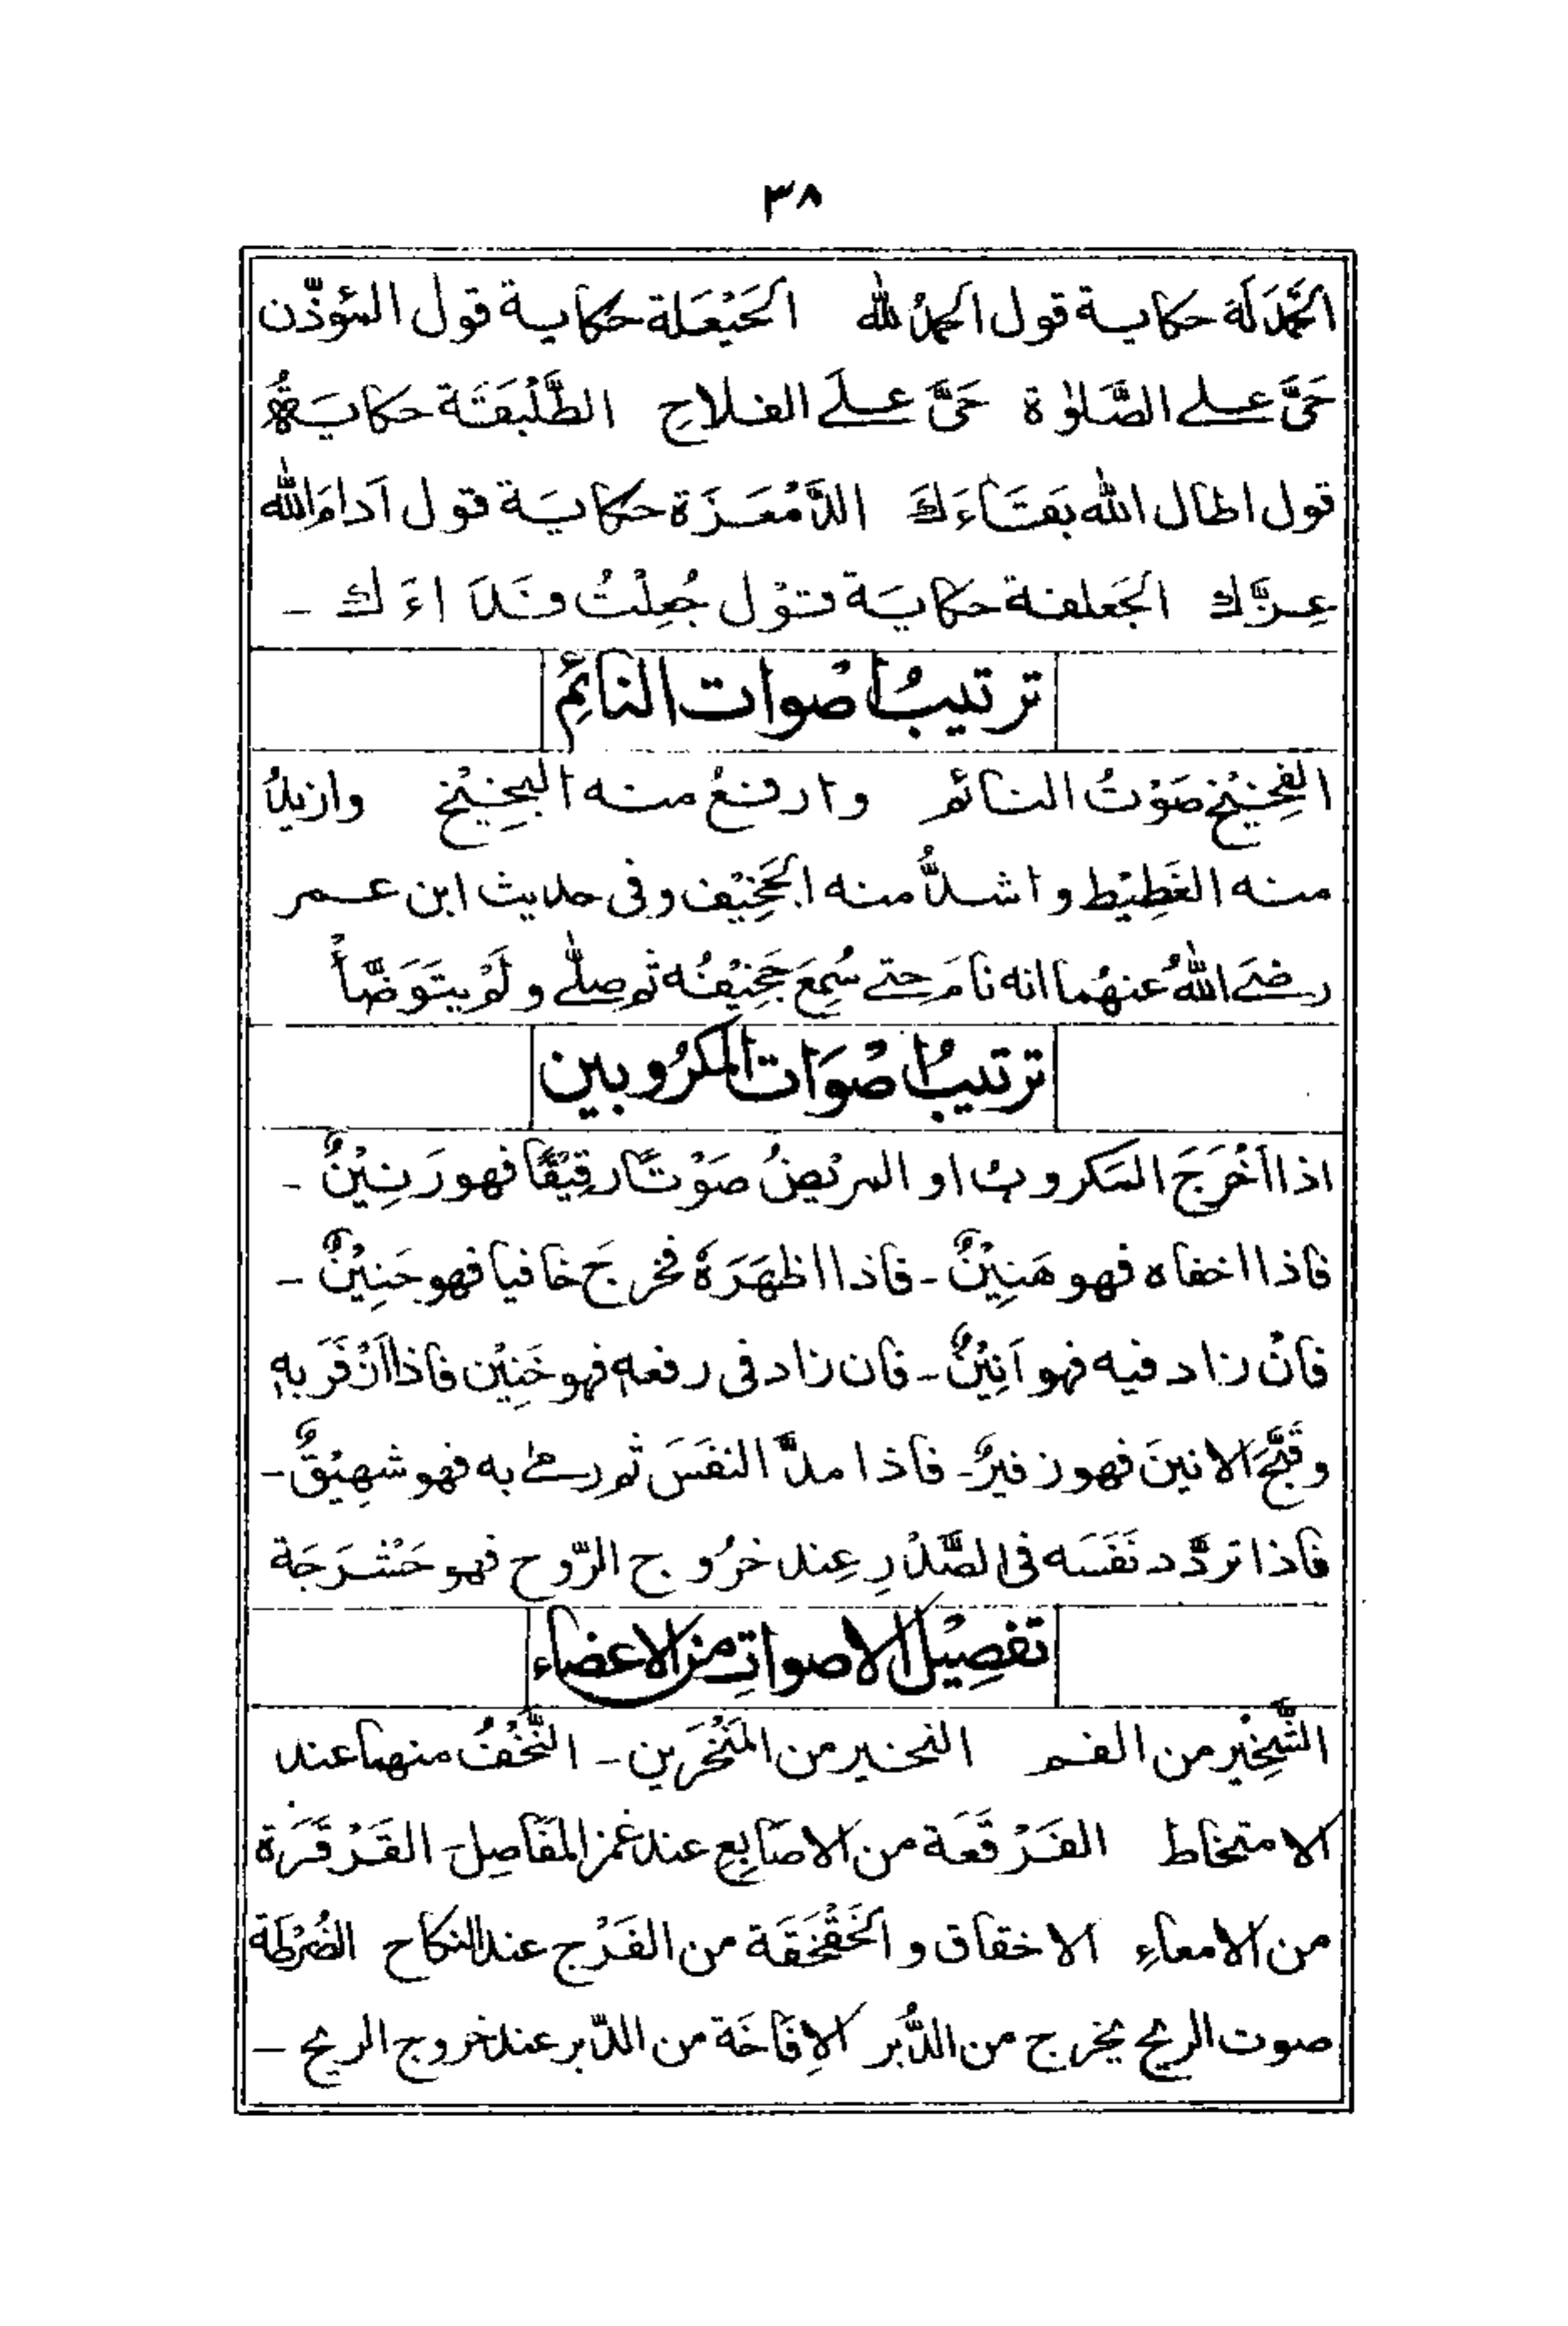 ٣٨
الحَمْدَلَة حكاية قول الحمدُ لله الحَيْعَلة حكاية قول المؤذّن
حَىَّ على الصَّلوٰة حَىَّ علَى الفلاحِ الطَّلْبَقَة حكايَةُ
قول اطال الله بقَاءَكَ الدَّمْعَزَة حكايَة قول اَدامَ الله
عِزَّك الجَعلفة حكايَة قوْل جُعِلْتُ فَدَاءَك -
ترتيبُ اصْوات النائِم
الفِخِيْخ صَوْتُ النائم وارفعُ منه البخِيْخ وازيدُ
منه الغَطِيْط واشدُّ منه الجَخِيْف وفى حديث ابن عمر
رضىَ اللهُ عنهُما انه نامَ حتى سُمِعَ جَخِيْفُه ثم صلّى ولَمْ يتَوَضَّأْ
ترتيبُ اصْوَات المكرُوبين
اذا اَخْرَجَ المَكروبُ او المريْضُ صَوْتًا رقِيْقًا فهو رَنِيْنٌ -
فاذا اخفاه فهو هَنِيْنٌ - فاذا اظهَرَهٗ فخرجَ خافيا فهو حَنِيْنٌ -
فانْ زاد فيه فهو اَنِيْنٌ - فان زاد فى رفعهٖ فهو خَنِيْن فاذا اَزْفَرَ بهٖ
وقَبَّحَ الانينَ فهو زفيرٌ - فاذا مدَّ النفَسَ ثم رمى به فهو شهِيْقٌ -
فاذا تردَّد نَفَسَه فى الصَّدْرِ عِند خرُوج الرّوح فهو حَشْرَجَة
تفصِيْل الاصواتِ من الاعضاء
الشَّخِيْر من الفم النخير من المَنْخَرَين - النَّخْفُ منهما عند
الامتخاط الفَرْقَعَة من الاصَابِعِ عند غمز المفَاصِل - القَرْقَرَة
من الامعاءِ الاخقاق والخَقْخَقَة من الفَرْج عند النكاح الضُرْطَة
صوت الريح يخرج من الدُّبُر الاِفَاخَة من الدّبر عند خروج الريح -